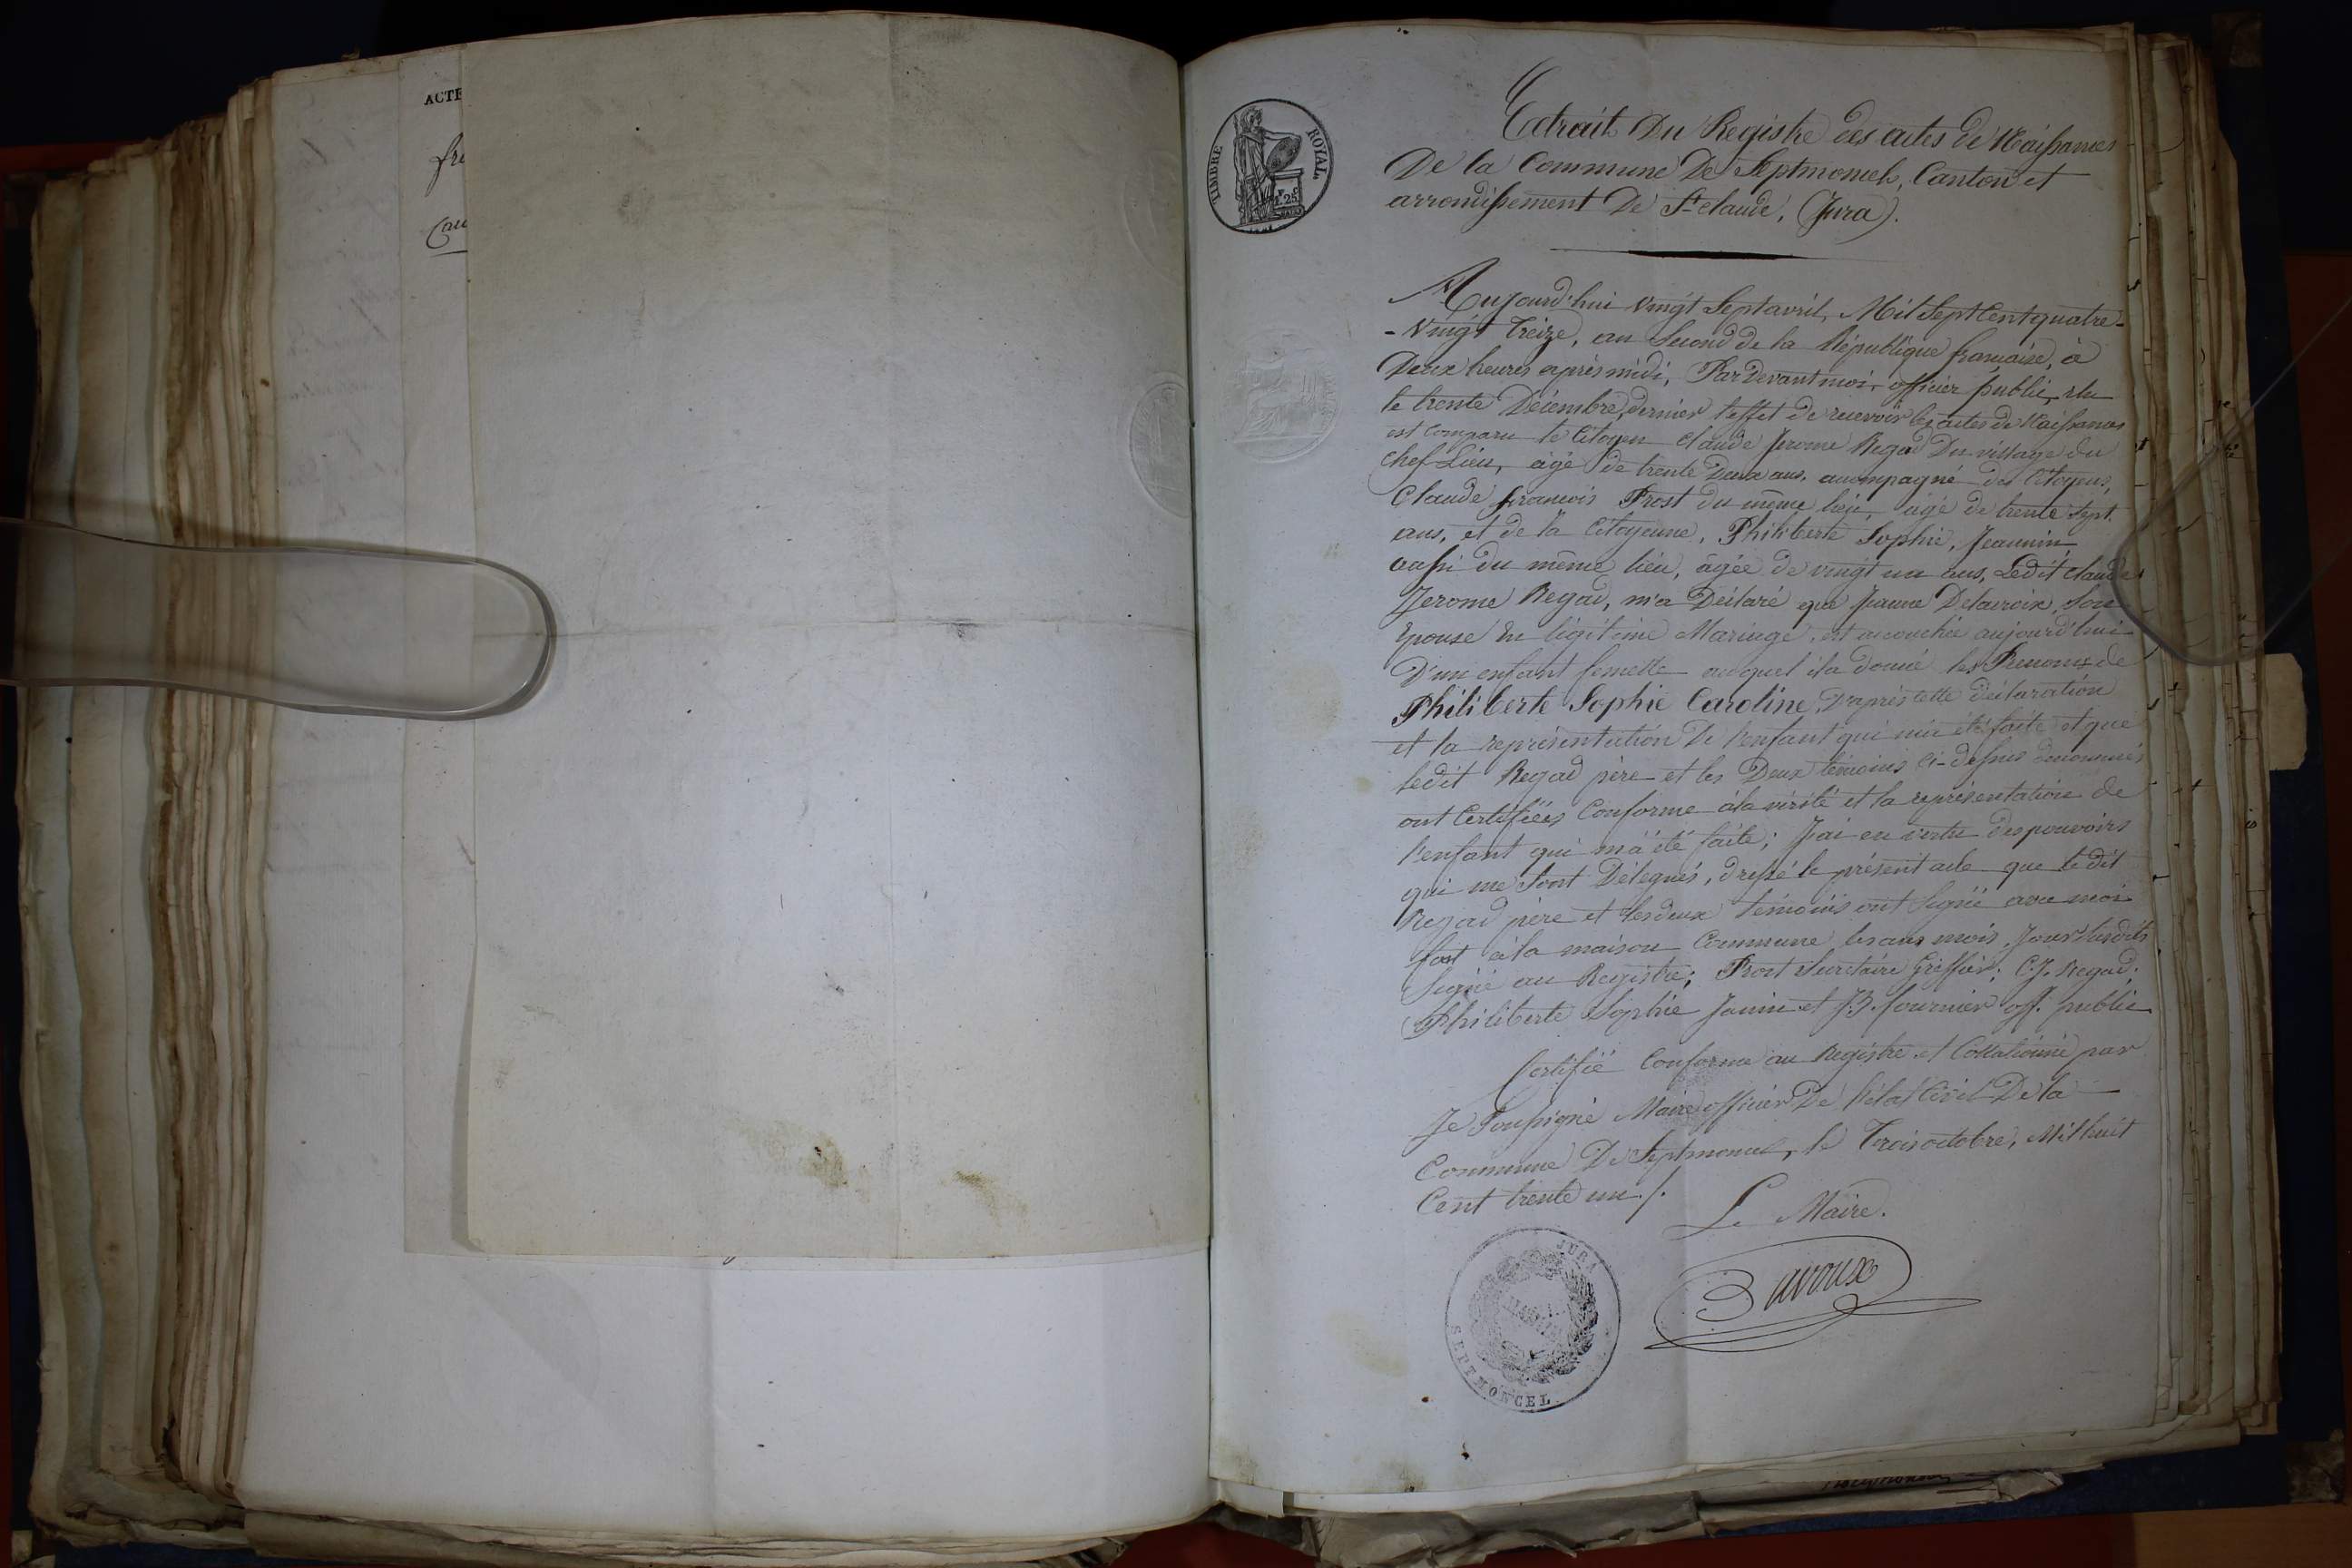 ACTE
fre
Cau
TIMBRE ROYAL
1.25
Extrait Du Registre des actes de Naissances
De la Commune De Septmoncel, Canton et
arrondissement De St. claude, (Jura).
Aujourd'hui vingt Sept avril, Mil Sept Cent quatre-
-Vingt Treize, an Second de la République française, à
Deux heures après midi, Par Devant moi, officier public, élu
le trente Décembre dernier l'effet de recevoir les actes de Naissances
est comparu le Citoyen Claude Jerome Regad Du village du
chef Lieu, âgé de trente Deux ans, accompagné des Citoyens,
Claude françois Prost du même lieu, âgé de trente Sept
ans, et de la Citoyenne, Philiberte Sophie, Jeannin
aussi du même lieu, âgée de vingt un ans, Ledit claude
Jerome Regad, m'a Déclaré que Jeanne Delacroix, Son
Epouse en légitime Mariage, est accouchée aujourd'hui
D'un enfant femelle auquel il a donné les Prenoms de
Philiberte Sophie Caroline, D'après cette déclaration
et la représentation De l'enfant qui m'a été faite et que
ledit Regad père et les Deux témoins Ci-dessus dénommés
ont Certifiées Conforme à la vérité et la représentation de
l'enfant qui m'a été faite; J'ai en vertu des pouvoirs
qui me Sont Délégués, dressé le présent acte que le dit
Regad père et les deux témoins ont Signé avec moi
fait à la maison Commune les ans mois, Jour Susdits
Signé au Registre; Prost Secrétaire Greffier; C.J. Regad;
Philiberte Sophie Janin et J.B. fournier off. public
Certifié Conforme au Registre et Collationné par
Je Soussigné Maire officier De l'état Civil De la
Commune De Septmoncel, le Trois octobre, Mil huit
Cent trente un /.
Le Maire.
Bavoux
JURA
MAIRIE
SEPTMONCEL